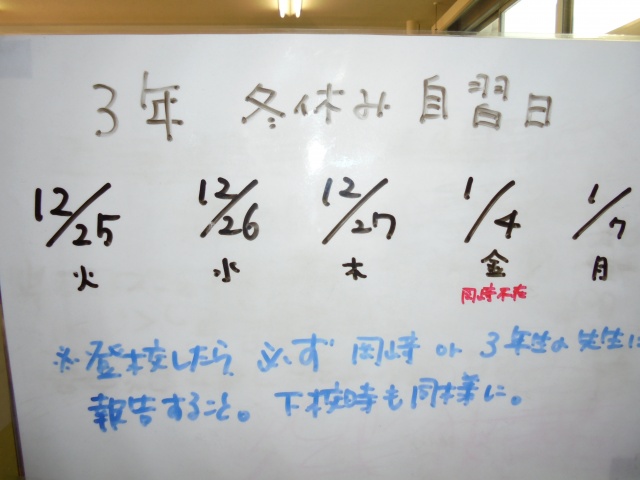 3年 冬休み 自習日
12/25 12/26 12/27 1/4 1/7
火 水 木 金 月
岡崎不在
※登校したら、必ず 岡崎 or 3年生の先生に
報告すること。下校時も同様に。